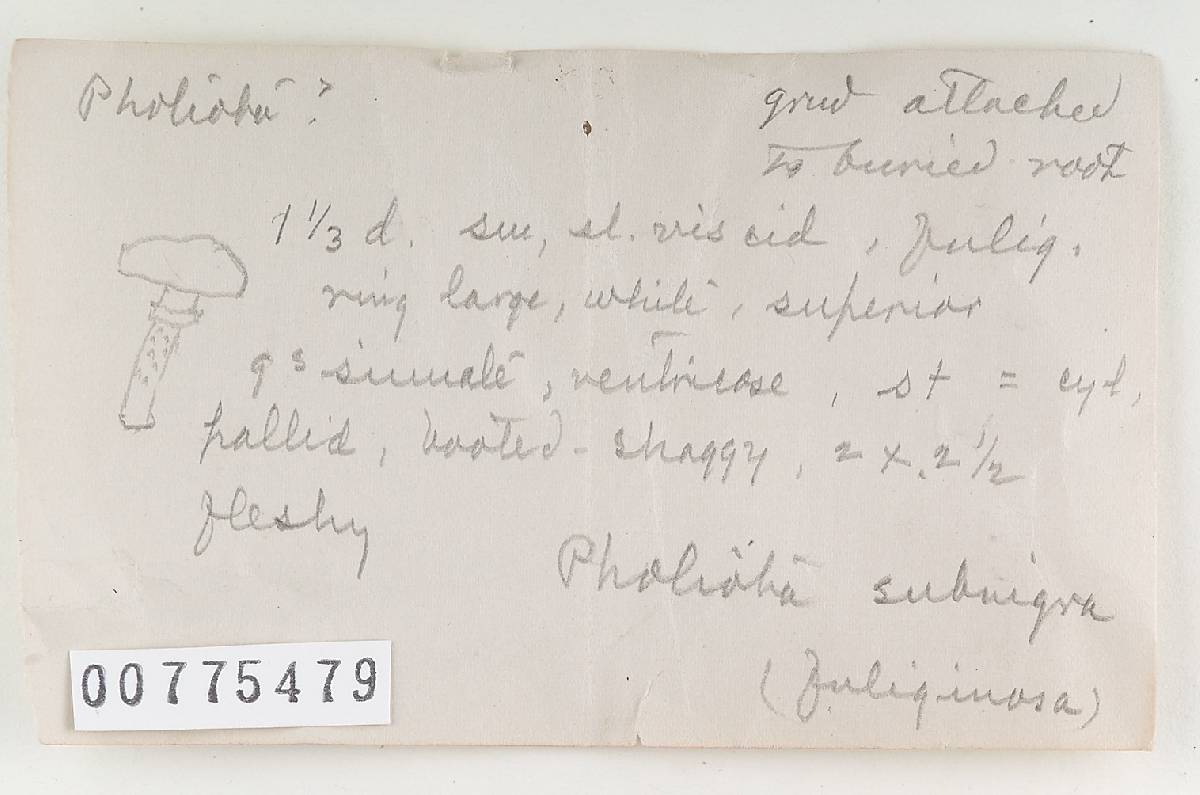 Pholiota?
grew attached
to buried root
1 1/3 d. sm, sl. viscid, fulig.
ring large, white, superior
gs sinuate, ventricose, st = cyl,
pallid, booted-shaggy, 2 x 2 1/2
fleshy
Pholiota subnigra
(fuliginosa)
00775479